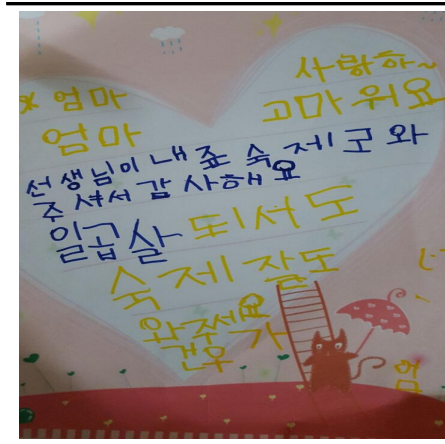 사랑하~
※ 엄마 고마워요
엄마
선생님이 내죠 숙제 로와
주셔서 감사해요
일곱살 되서도
숙제 잘도
와주세요
건우가
엄